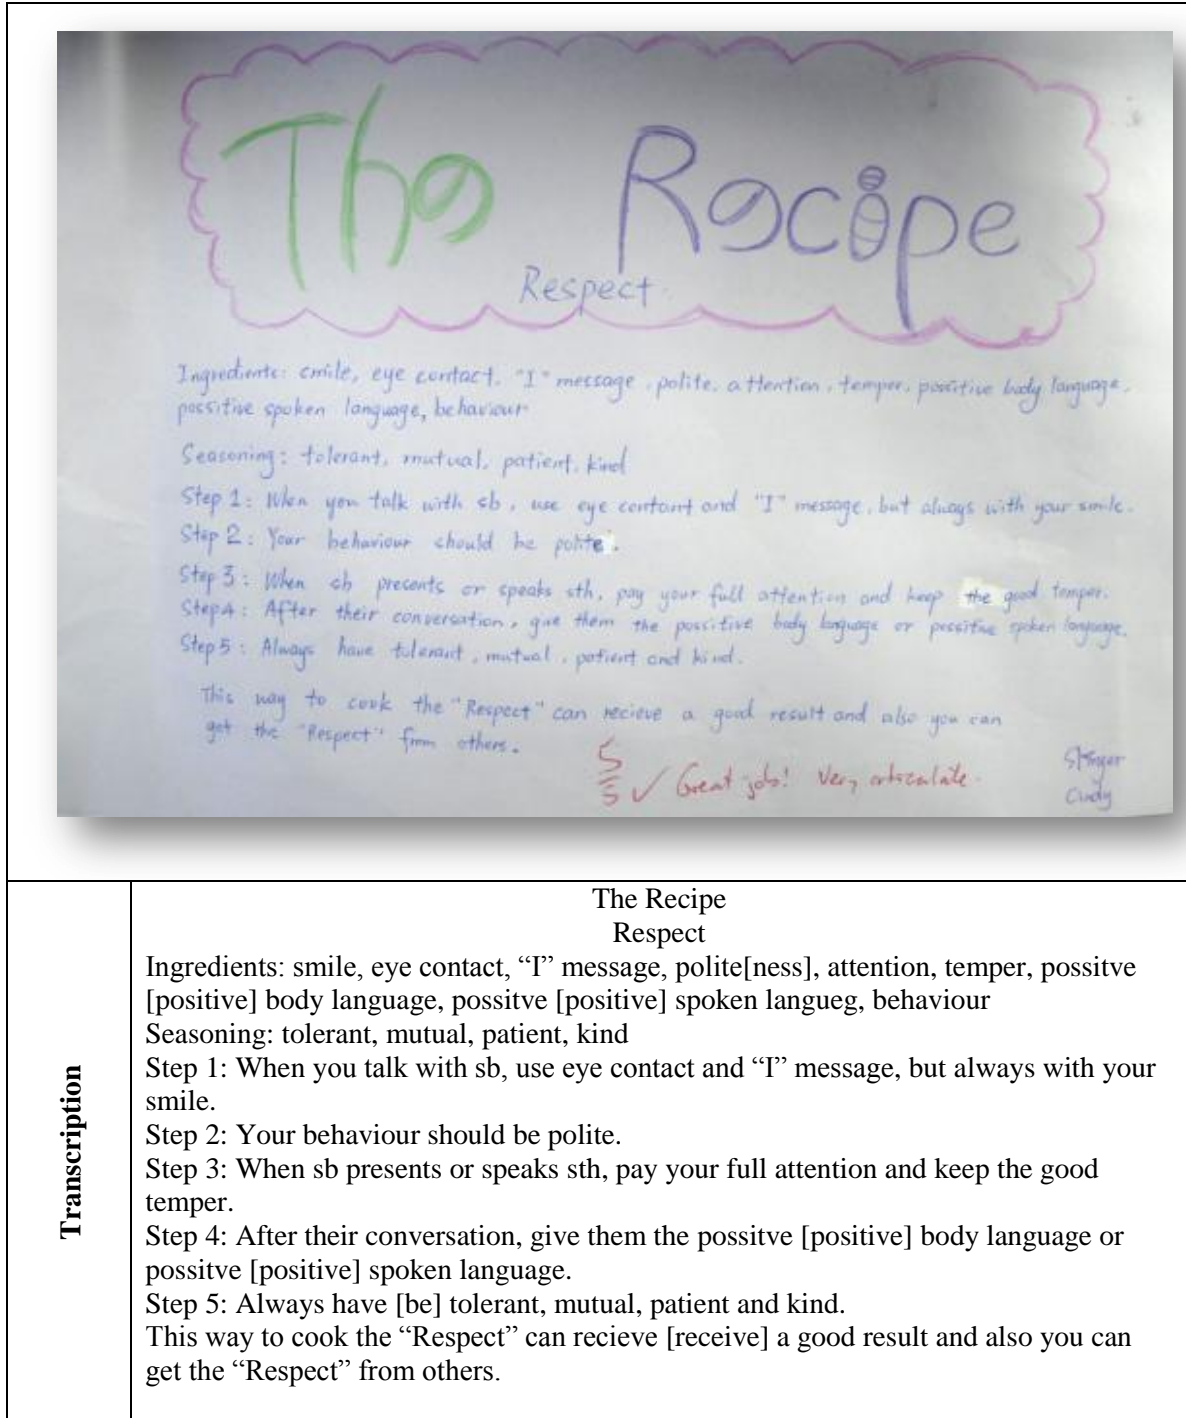 The Recipe
Respect
Ingredients: smile, eye contact, "I" message, polite, attention, temper, possitive body language,
possitive spoken language, behaviour
Seasoning: tolerant, mutual, patient, kind
Step 1: When you talk with sb, use eye contant and "I" message, but always with your smile.
Step 2: Your behaviour should be polite.
Step 3: When sb presents or speaks sth, pay your full attention and keep the good temper.
Step4: After their conversation, give them the possitive body language or possitive spoken language.
Step 5: Always have tolerant, mutual, patient and kind.
This way to cook the "Respect" can recieve a good result and also you can
get the "Respect" from others.
5/5 ✓ Great job! Very articulate.
Cindy
Transcription
The Recipe
Respect
Ingredients: smile, eye contact, “I” message, polite[ness], attention, temper, possitve
[positive] body language, possitve [positive] spoken langueg, behaviour
Seasoning: tolerant, mutual, patient, kind
Step 1: When you talk with sb, use eye contact and “I” message, but always with your
smile.
Step 2: Your behaviour should be polite.
Step 3: When sb presents or speaks sth, pay your full attention and keep the good
temper.
Step 4: After their conversation, give them the possitve [positive] body language or
possitve [positive] spoken language.
Step 5: Always have [be] tolerant, mutual, patient and kind.
This way to cook the “Respect” can recieve [receive] a good result and also you can
get the “Respect” from others.